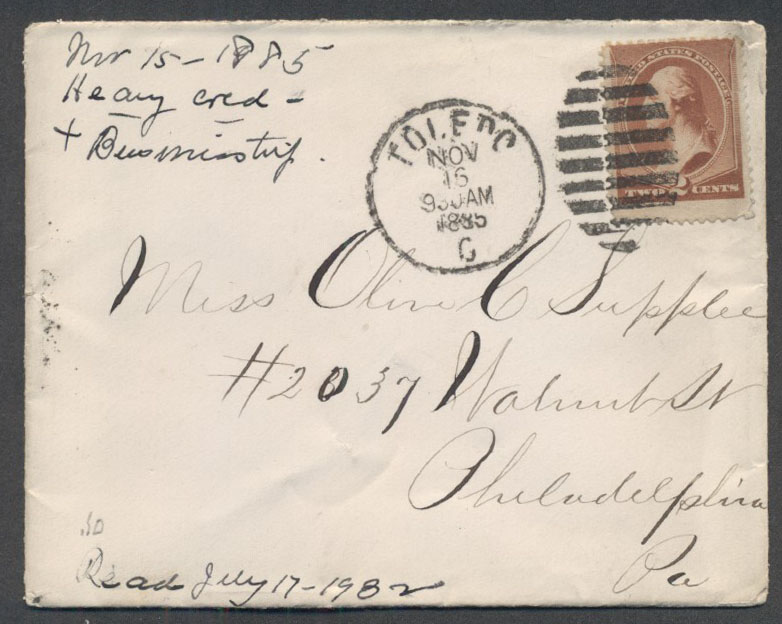 Nov 15-1885
Heavy cred -
+ Business trip.
TOLEDO
NOV
16
930AM
1885
UNITED STATES POSTAGE
2 CENTS
Miss Olive C Supplee
#2037 Walnut St
Philadelphia
Pa
30
Read July 17-1932